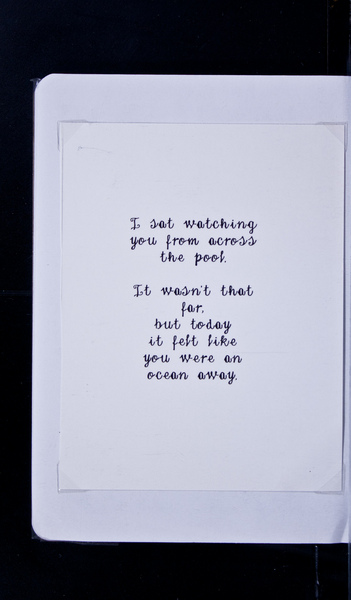 I sat watching
you from across
the pool.
It wasn't that
far,
but today
it felt like
you were an
ocean away.